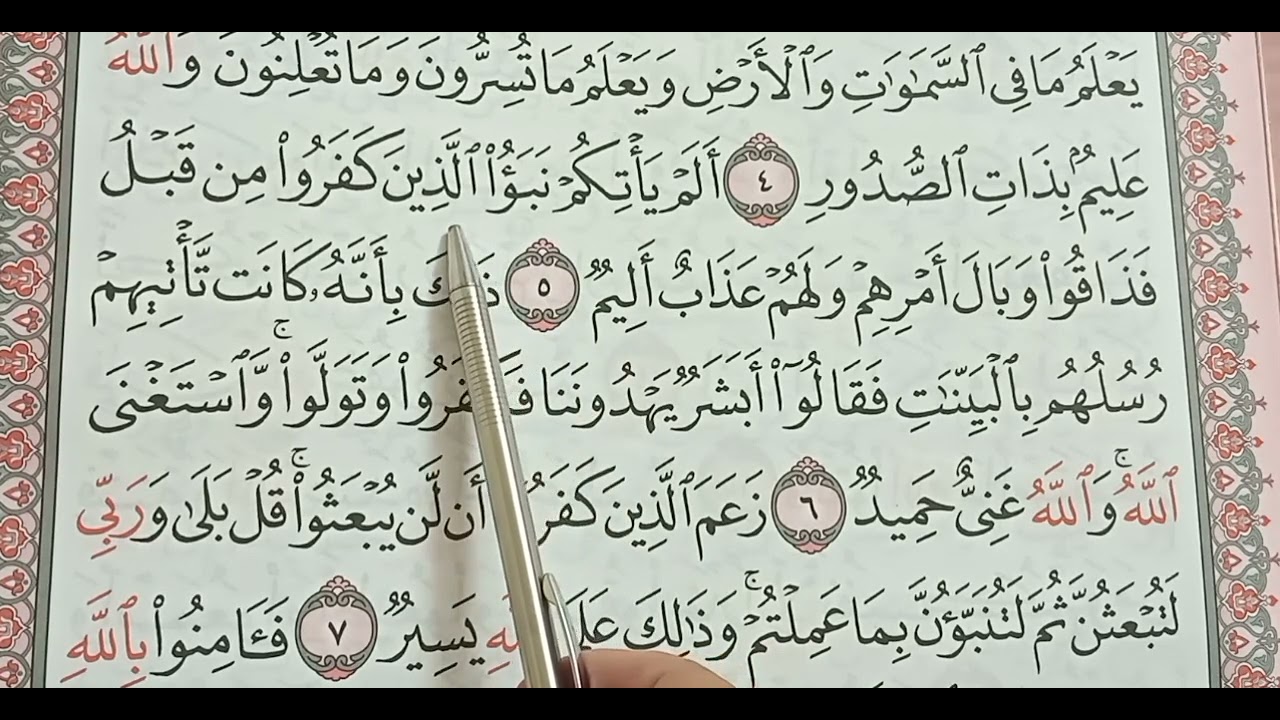 يَعْلَمُ مَا فِى ٱلسَّمَٰوَٰتِ وَٱلْأَرْضِ وَيَعْلَمُ مَا تُسِرُّونَ وَمَا تُعْلِنُونَ وَٱللَّهُ
عَلِيمٌۢ بِذَاتِ ٱلصُّدُورِ ٤ أَلَمْ يَأْتِكُمْ نَبَؤُا۟ ٱلَّذِينَ كَفَرُوا۟ مِن قَبْلُ
فَذَاقُوا۟ وَبَالَ أَمْرِهِمْ وَلَهُمْ عَذَابٌ أَلِيمٌ ٥ ذَٰلِكَ بِأَنَّهُۥ كَانَت تَّأْتِيهِمْ
رُسُلُهُم بِٱلْبَيِّنَٰتِ فَقَالُوٓا۟ أَبَشَرٌ يَهْدُونَنَا فَكَفَرُوا۟ وَتَوَلَّوا۟ ۚ وَّٱسْتَغْنَى
ٱللَّهُ ۚ وَٱللَّهُ غَنِىٌّ حَمِيدٌ ٦ زَعَمَ ٱلَّذِينَ كَفَرُوٓا۟ أَن لَّن يُبْعَثُوا۟ ۚ قُلْ بَلَىٰ وَرَبِّى
لَتُبْعَثُنَّ ثُمَّ لَتُنَبَّؤُنَّ بِمَا عَمِلْتُمْ ۚ وَذَٰلِكَ عَلَى ٱللَّهِ يَسِيرٌ ٧ فَـَٔامِنُوا۟ بِٱللَّهِ